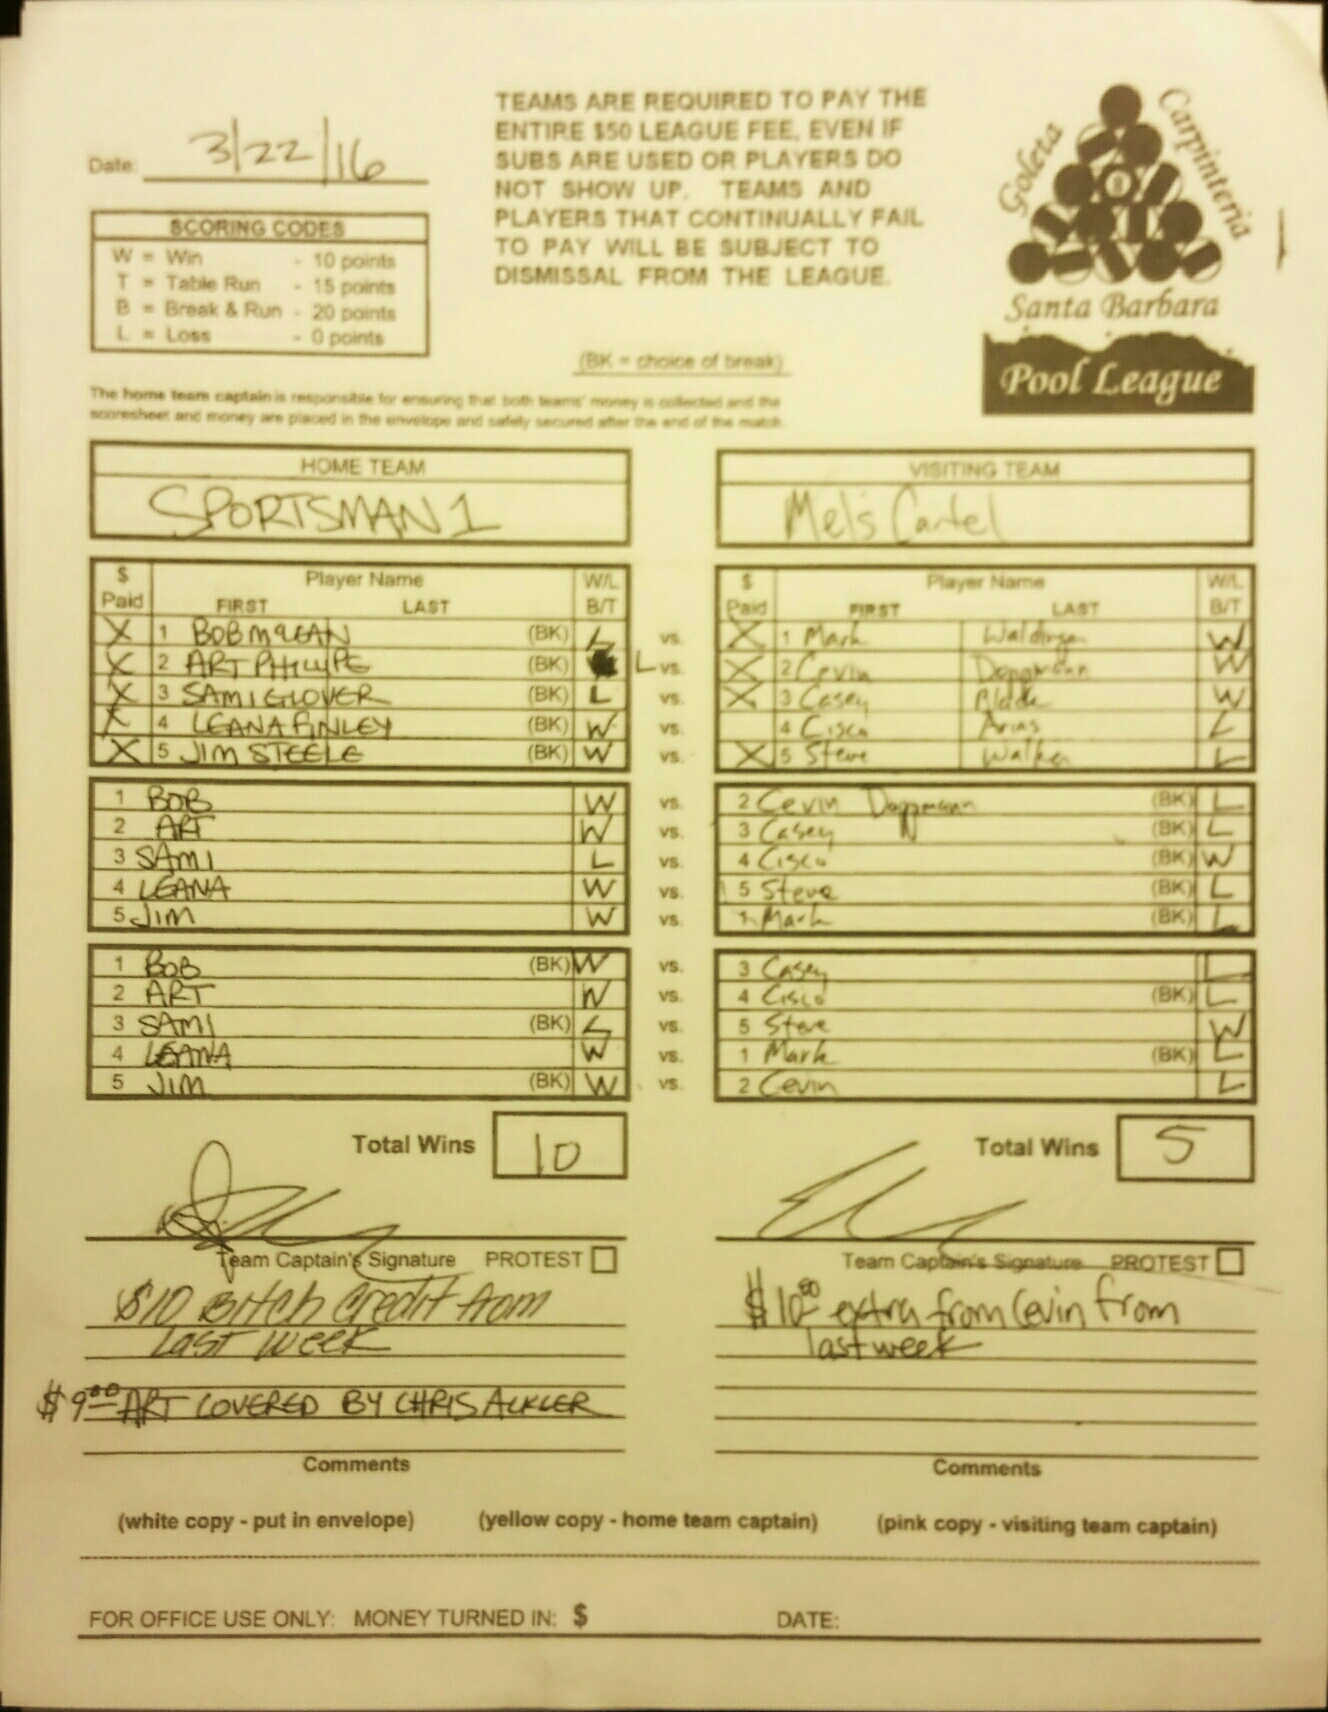 Date: 3/22/16
TEAMS ARE REQUIRED TO PAY THE
ENTIRE $50 LEAGUE FEE, EVEN IF
SUBS ARE USED OR PLAYERS DO
NOT SHOW UP. TEAMS AND
PLAYERS THAT CONTINUALLY FAIL
TO PAY WILL BE SUBJECT TO
DISMISSAL FROM THE LEAGUE.
Goleta
Carpinteria
8
Santa Barbara
Pool League
SCORING CODES
W = Win - 10 points
T = Table Run - 15 points
B = Break & Run - 20 points
L = Loss - 0 points
(BK = choice of break)
The home team captain is responsible for ensuring that both teams' money is collected and the
scoresheet and money are placed in the envelope and safely secured after the end of the match.
HOME TEAM
SPORTSMAN 1
VISITING TEAM
Mel's Cartel
$ Paid Player Name FIRST LAST W/L B/T
$ Paid Player Name FIRST LAST W/L B/T
X 1 BOB McLEAN (BK) L vs. X 1 Mark W
X 2 ART PHILLIPE (BK) L vs. X 2 Cevin Doppmann W
X 3 SAMI GLOVER (BK) L vs. X 3 Casey W
X 4 LEANA FINLEY (BK) W vs. 4 Cisco Arias L
X 5 JIM STEELE (BK) W vs. X 5 Steve Walker L
1 BOB W vs. 2 Cevin Doppmann (BK) L
2 ART W vs. 3 Casey (BK) L
3 SAMI L vs. 4 Cisco (BK) W
4 LEANA W vs. 5 Steve (BK) L
5 JIM W vs. 1 Mark (BK) L
1 BOB (BK) W vs. 3 Casey L
2 ART W vs. 4 Cisco (BK) L
3 SAMI (BK) L vs. 5 Steve W
4 LEANA W vs. 1 Mark (BK) L
5 JIM (BK) W vs. 2 Cevin L
Total Wins 10
Total Wins 5
Team Captain's Signature PROTEST
Team Captain's Signature PROTEST
$10 Bitch Credit from
LAST WEEK
$9.00 ART COVERED BY CHRIS ACKLER
Comments
$10.00 extra from Cevin from
last week
Comments
(white copy - put in envelope) (yellow copy - home team captain) (pink copy - visiting team captain)
FOR OFFICE USE ONLY: MONEY TURNED IN: $ DATE: